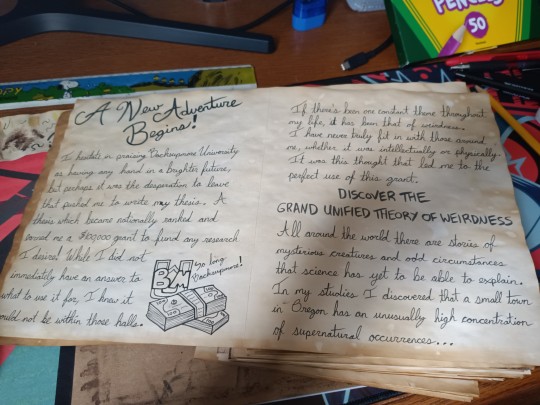 A New Adventure
Begins!
I hesitate in praising Backupsmore University
as having any hand in a brighter future,
but perhaps it was the desperation to leave
that pushed me to write my thesis. A
thesis which became nationally ranked and
earned me a $100,000 grant to fund any research
I desire! While I did not
immediately have an answer to
what to use it for, I knew it
would not be within those halls.
BMU
So long
Backupsmore!
If there's been one constant theme throughout
my life, it has been that of weirdness.
I have never truly fit in with those around
me, whether it was intellectually or physically.
It was this thought that led me to the
perfect use of this grant.
DISCOVER THE
GRAND UNIFIED THEORY OF WEIRDNESS
All around the world there are stories of
mysterious creatures and odd circumstances
that science has yet to be able to explain.
In my studies I discovered that a small town
in Oregon has an unusually high concentration
of supernatural occurrences...
50